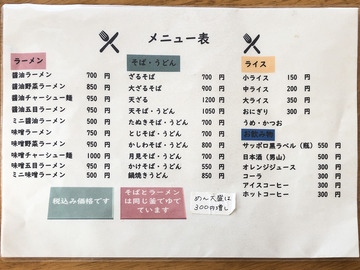 メニュー表
ラーメン
醤油ラーメン 700 円
醤油野菜ラーメン 850 円
醤油チャーシュー麺 950 円
醤油五目ラーメン 950 円
ミニ醤油ラーメン 500 円
味噌ラーメン 750 円
味噌野菜ラーメン 900 円
味噌チャーシュー麺 1000 円
味噌五目ラーメン 950 円
ミニ味噌ラーメン 500 円
税込み価格です
そば・うどん
ざるそば 700 円
大ざるそば 900 円
天ざる 1200 円
天そば・うどん 1050 円
たぬきそば・うどん 700 円
とじそば・うどん 700 円
かしわそば・うどん 800 円
月見そば・うどん 700 円
かけそば・うどん 550 円
鍋焼きうどん 850 円
そばとラーメン
は同じ釜でゆで
ています
ライス
小ライス 150 円
中ライス 200 円
大ライス 350 円
おにぎり 300 円
うめ・かつお
お飲み物
サッポロ黒ラベル(瓶) 550 円
日本酒(男山) 500 円
オレンジジュース 300 円
コーラ 300 円
アイスコーヒー 300 円
ホットコーヒー 300 円
めん大盛は
300円増し